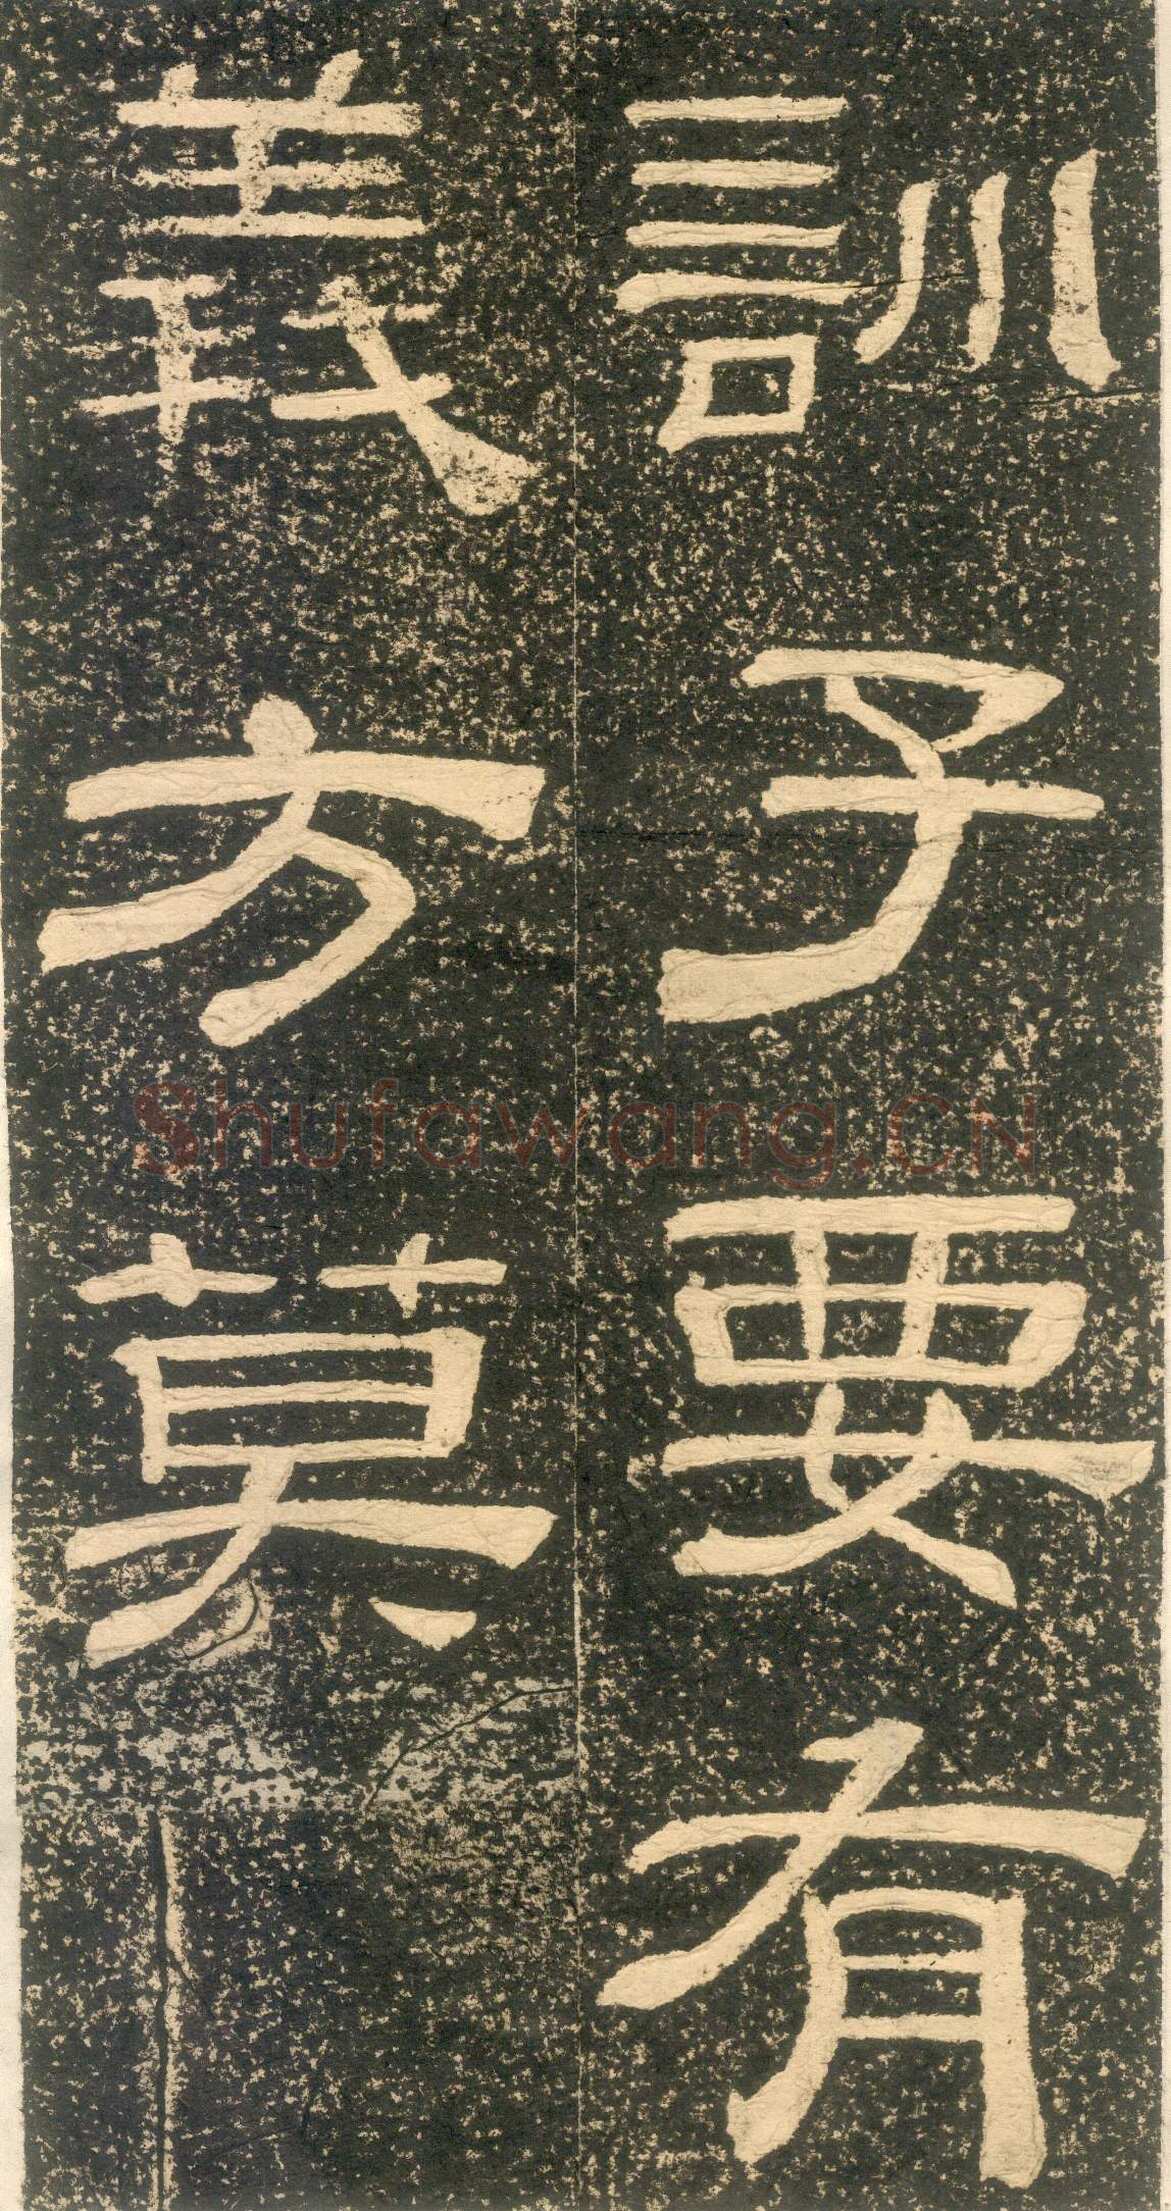 訓子要有
義方莫
Shufawang.CN